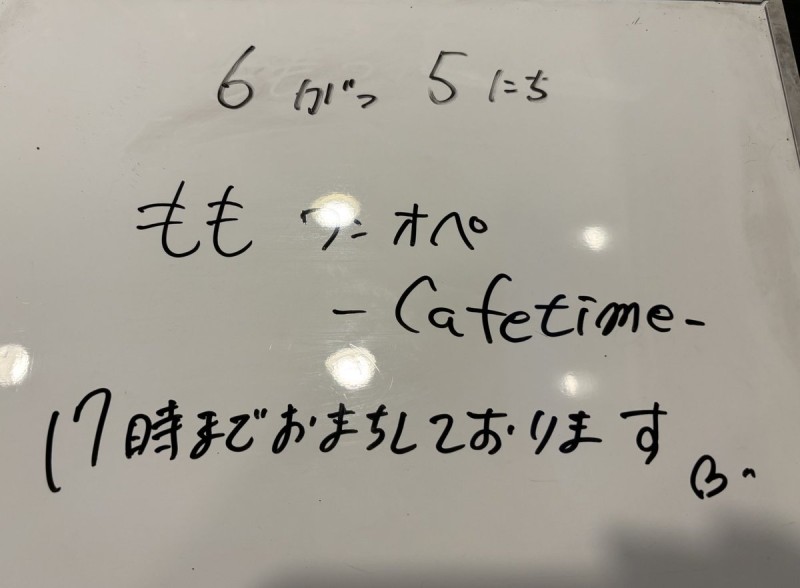 6がつ 5にち
もも ワンオペ
- Cafetime -
17時までおまちしております